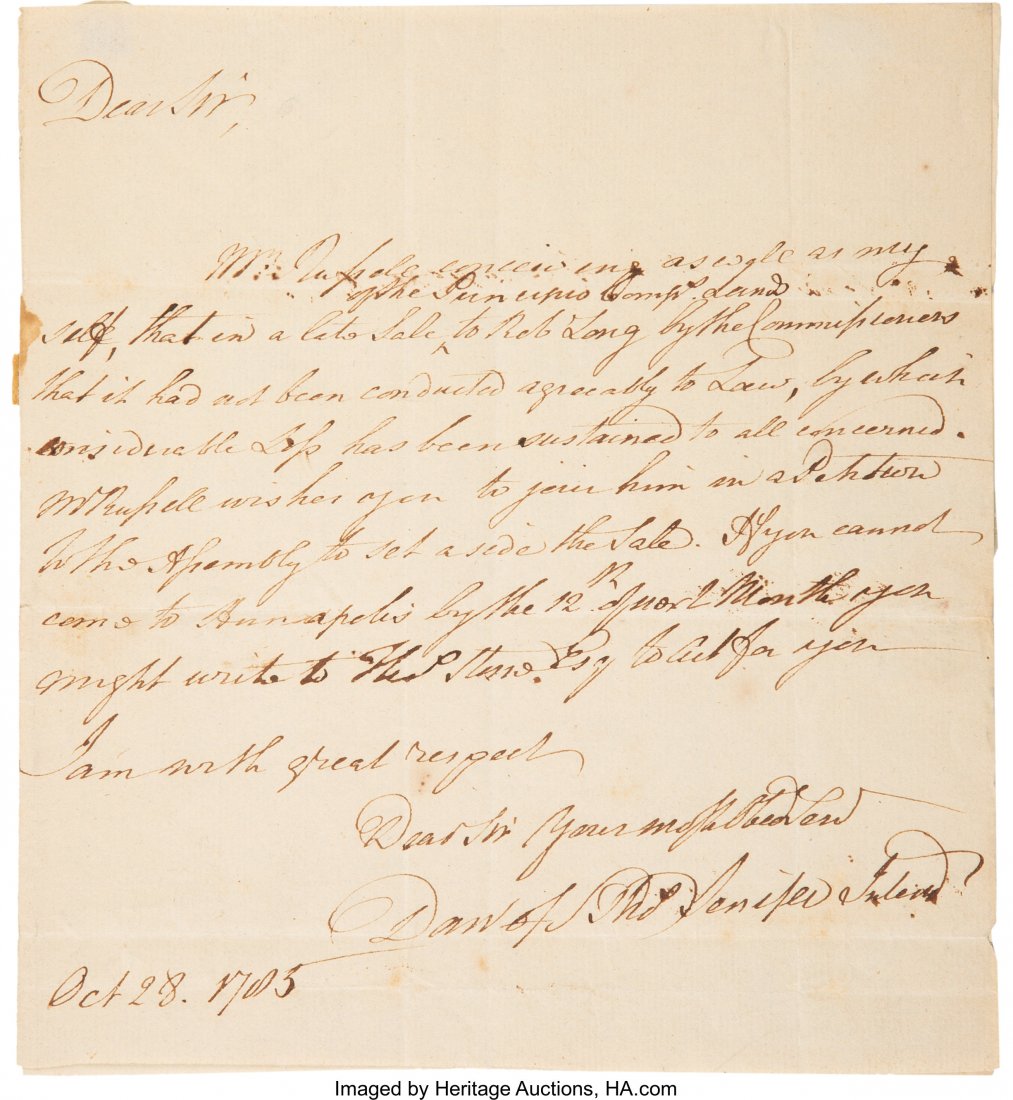 Dear Sir,
Mr. Russell conceiving as well as my
of the Principio Compy. Land
self, that in a late Sale ^ to Rob Long by the Commissioners
that it had not been conducted agreeably to Law, by which
considerable Loss has been sustained to all concerned.
Mr Russell wishes you to join him in a Petition
to the Assembly to set aside the Sale. If you cannot
come to Annapolis by the 12th of next Month you
might write to Thos Stone. Esq to act for you
I am with great respect
Dear Sir Your most Obed Serv
Danl of St Thos Jenifer Intend
Oct 28. 1785
Imaged by Heritage Auctions, HA.com